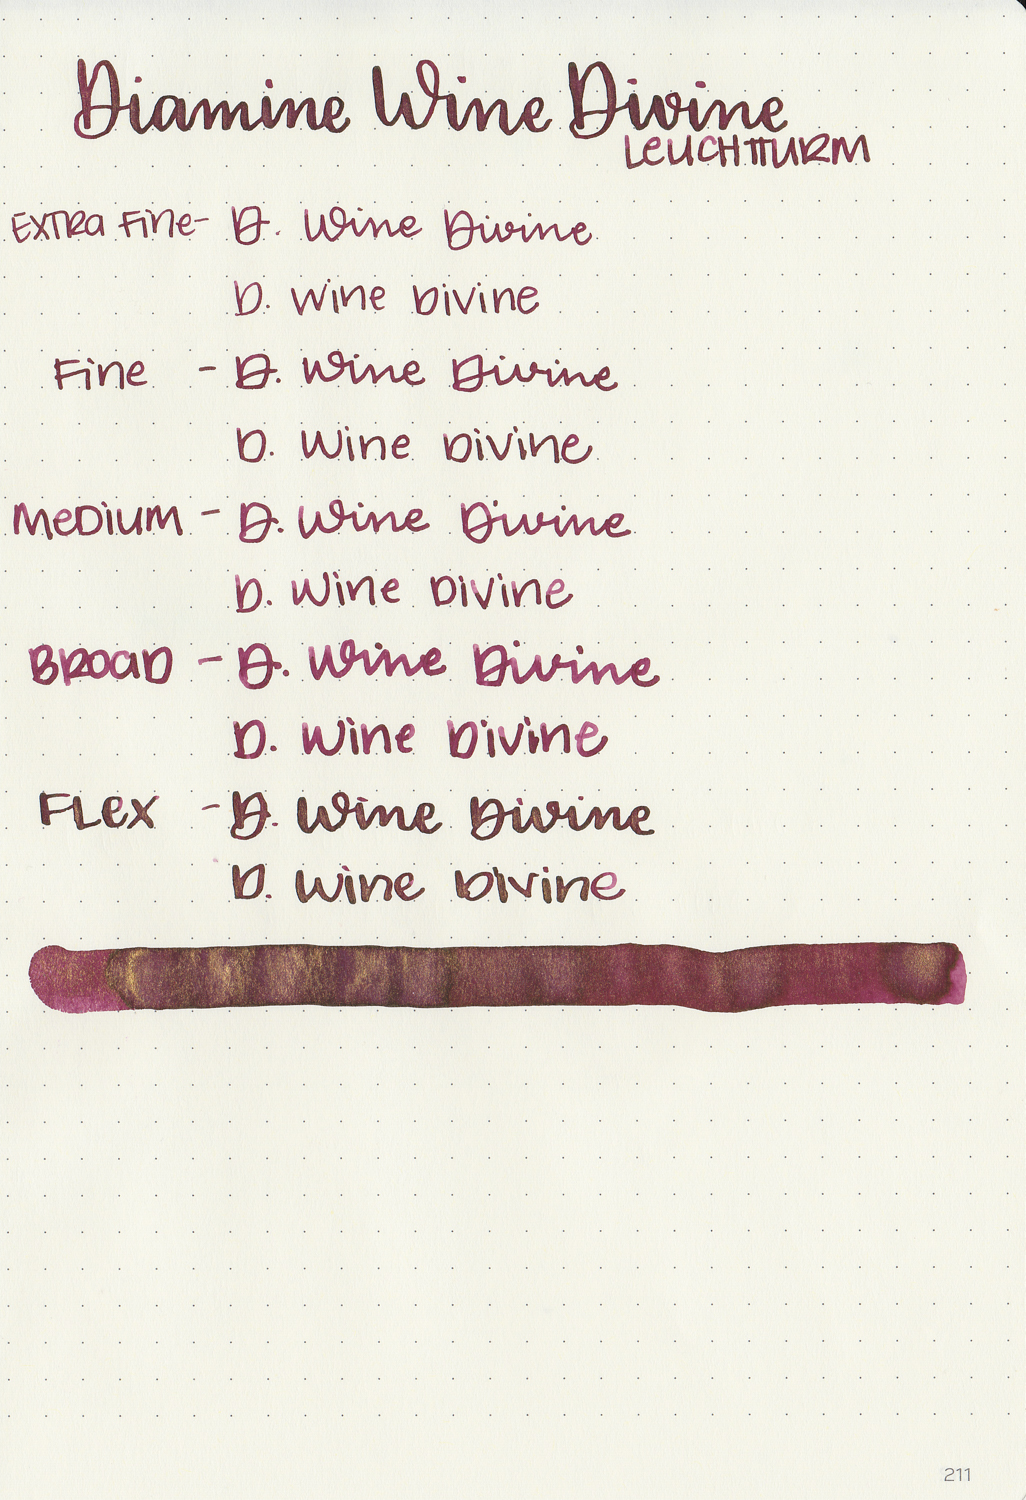 Diamine Wine Divine
LEUCHTTURM
EXTRA Fine- D. Wine Divine
D. Wine Divine
Fine - D. Wine Divine
D. Wine Divine
MeDiuM - D. Wine Divine
D. Wine Divine
BROAD - D. Wine Divine
D. Wine Divine
FLex - D. Wine Divine
D. Wine Divine
211